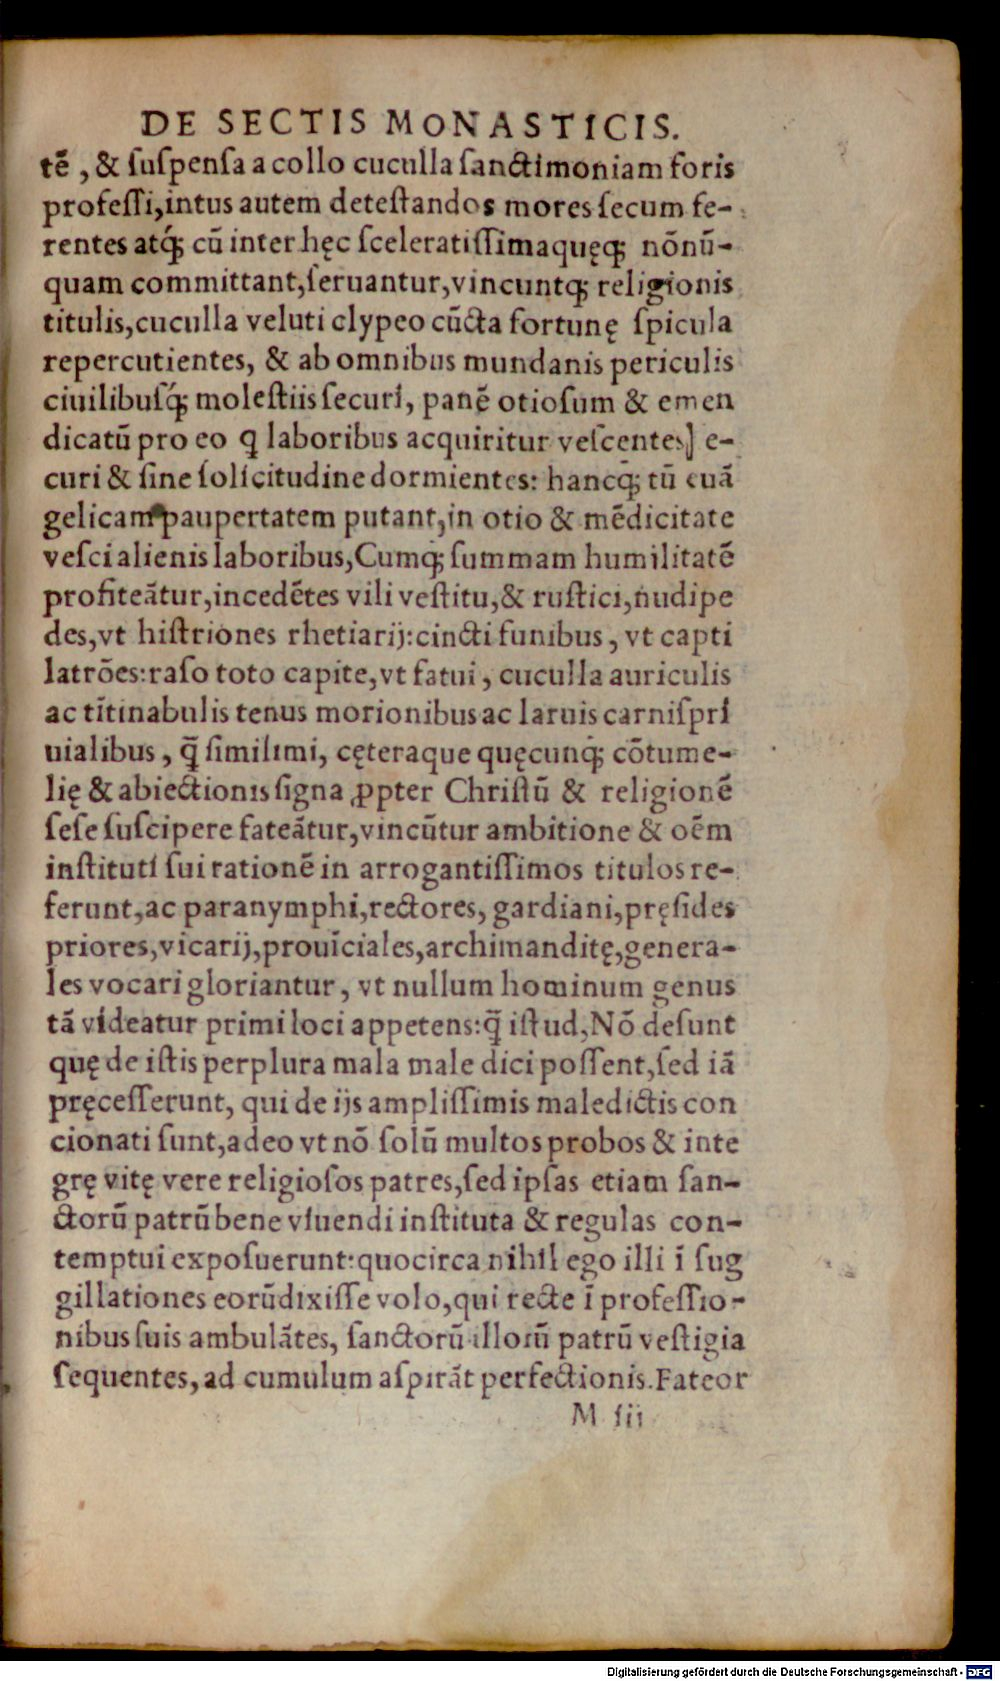 DE SECTIS MONASTICIS.
tē, & ſuſpenſa a collo cuculla ſanctimoniam foris
profeſſi,intus autem deteſtandos mores ſecum fe-
rentes atq́; cū inter hęc ſceleratiſſimaquęq; nōnū-
quam committant,ſeruantur,vincuntq; religionis
titulis,cuculla veluti clypeo cūcta fortunę ſpicula
repercutientes, & ab omnibus mundanis periculis
ciuilibuſq́; moleſtiis ſecuri, panē otioſum & emen
dicatū pro eo q laboribus acquiritur veſcentes] e-
curi & ſine ſolicitudine dormientes: hancq; tū euā
gelicam paupertatem putant,in otio & mēdicitate
veſci alienis laboribus,Cumq; ſummam humilitatē
profiteātur,incedētes vili veſtitu,& ruſtici,nudipe
des,vt hiſtriones rhetiarij:cincti funibus, vt capti
latrōes:raſo toto capite,vt fatui, cuculla auriculis
ac tītinabulis tenus morionibus ac laruis carniſpri
uialibus, q̄ ſimilimi, cęteraque quęcunq; cōtume-
lię & abiectionis ſigna ꝓpter Chriſtū & religionē
ſeſe ſuſcipere fateātur,vincūtur ambitione & oēm
inſtituti ſui rationē in arrogantiſſimos titulos re-
ferunt,ac paranymphi,rectores, gardiani,pręſides
priores,vicarij,prouīciales,archimanditę,genera-
les vocari gloriantur, vt nullum hominum genus
tā videatur primi loci appetens:q̄ iſtud,Nō deſunt
quę de iſtis perplura mala male dici poſſent,ſed iā
pręceſſerunt, qui de ijs ampliſſimis maledictis con
cionati ſunt,adeo vt nō ſolū multos probos & inte
grę vitę vere religioſos patres,ſed ipſas etiam ſan-
ctorū patrū bene viuendi inſtituta & regulas con-
temptui expoſuerunt:quocirca nihil ego illi ī ſug
gillationes eorū dixiſſe volo,qui recte ī profeſſio-
nibus ſuis ambulātes, ſanctorū illorū patrū veſtigia
ſequentes, ad cumulum aſpirāt perfectionis.Fateor
M iii
Digitalisierung gefördert durch die Deutsche Forschungsgemeinschaft - DFG